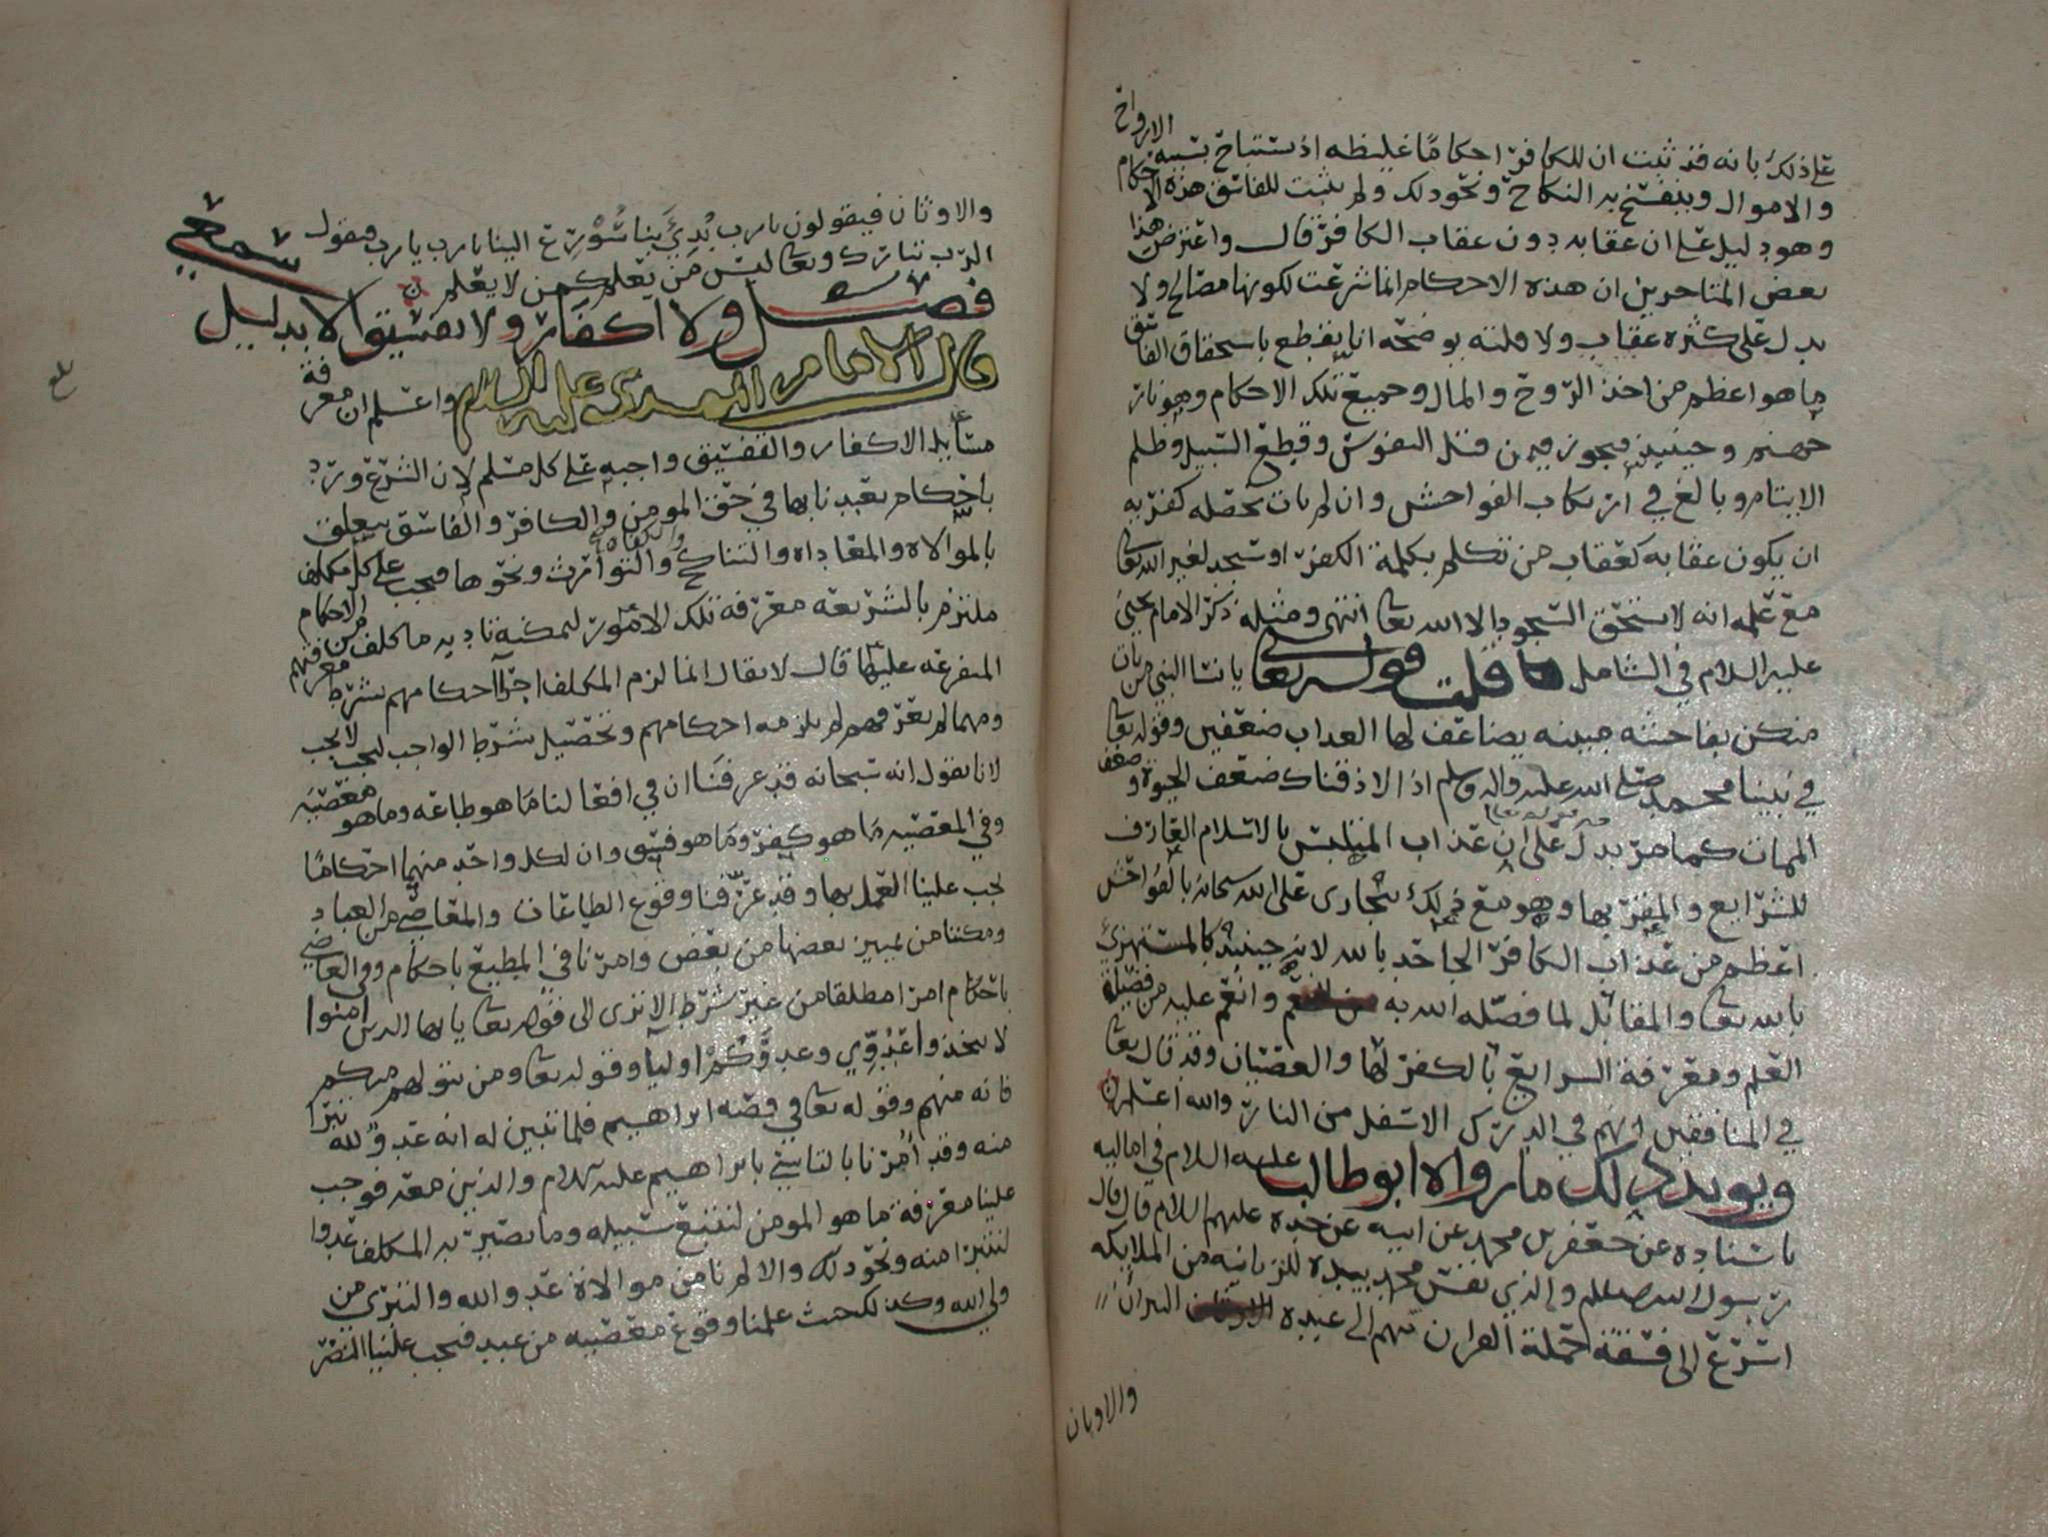 على ذلك بانه قد ثبت ان للكافر احكاما غليظه اذ تستباح بسببه الارواح
والاموال وينفسخ به النكاح ونحو ذلك ولم يثبت للفاسق هذه الاحكام
وهو دليل على ان عقابه دون عقاب الكافر قال واعترض هذا
بعض المتاخرين ان هذه الاحكام انما شرعت لكونها مصالح ولا
يدل على كثره عقاب ولا قلته يوضحه انا نقطع باستحقاق الفاسق
ما هو اعظم من اخذ الروح والمال وجميع تلك الاحكام وهو نار
جهنم وحينيذ فيجوز فيمن قتل النفوس وقطع السبيل وظلم
الايتام وبالغ في ارتكاب الفواحش وان لم يات بخصله كفريه
ان يكون عقابه كعقاب من تكلم بكلمة الكفر او سجد لغير الله تعا
مع علمه انه لا يستحق السجود الا الله تعا انتهى ومثله ذكر الامام يحيى
عليه السلام في الشامل قلت قوله تعالى يا نسا النبي من يات
منكن بفاحشه مبينه يضاعف لها العذاب ضعفين وقوله تعا
في نبينا محمد صلى الله عليه واله وسلم اذا لاذقناك ضعف الحيوة وضعف
الممات كما مر يدل على ان عذاب المتلبس بالاسلام العارف
للشرايع والمقر بها وهو مع ذلك يتجارى على الله سبحانه بالفواحش
اعظم من عذاب الكافر الجاحد بالله لانه حينيذ كالمستهزئ
بالله تعا والمقابل لما فضله الله به وانعم عليه من فضيلة
العلم ومعرفة الشرايع بالكفر لها والعصيان وقد قال تعا
في المنافقين انهم في الدرك الاسفل من النار والله اعلم
ويويد ذلك ما رواه ابو طالب عليه السلام في اماليه
باسناده عن جعفر بن محمد عن ابيه عن جده عليهم السلام قال قال
رسول الله صلعلم والذي نفس محمد بيده للزبانيه من الملايكه
اسرع الى فسقة حملة القران منهم الى عبدة النيران
والاوثان
والاوثان فيقولون يا رب بدئ بنا سورع الينا يا رب يا رب فيقول
الرب تبارك وتعا ليس من يعلم كمن لا يعلم
فصل ولا اكفار ولا تفسيق الا بدليل سمعي
قال الامام المهدي عليه السلام واعلم ان معرفة
مسايل الاكفار والتفسيق واجبه على كل مسلم لان الشرع ورد
باحكام تعبدنا بها في حق المومن والكافر والفاسق يتعلق
بالموالاه والمعاداه والتناكح والتوارث ونحوها فيجب على كل مكلف
ملتزم بالشريعه معرفه تلك الامور ليمكنه تاديه ما كلف من الاحكام
المتفرعه عليها قال لا يقال انما لزم المكلف اجرا احكامهم بشرط معرفتهم
ومهما لم يعرفهم لم يلزمه احكامهم وتحصيل شرط الواجب ليجب لا يجب
لانا نقول انه سبحانه قد عرفنا ان في افعالنا ما هو طاعه وما هو معصيه
وفي المعصيه ما هو كفر وما هو فسق وان لكل واحد منهما احكاما
يجب علينا العمل بها وقد عرفنا وقوع الطاعات والمعاصي من العباد
ومكننا من تمييز بعضها من بعض وامرنا في المطيع باحكام وفي العاصي
باحكام امرا مطلقا من غير شرط الا ترى الى قوله تعا يا ايها الذين امنوا
لا تتخذوا عدوي وعدوكم اوليا وقوله تعا ومن يتولهم منكم
فانه منهم وقوله تعا في قصه ابراهيم فلما تبين له انه عدو لله تبرا
منه وقد امرنا بالتاسي بابراهيم عليه السلام والذين معه فوجب
علينا معرفة ما هو المومن لنتبع سبيله وما يصير به المكلف عدوا
لنتبرا منه ونحو ذلك والا لم نامن موالاة عدو الله والتبري من
ولي الله وكذلك حيث علمنا وقوع معصيه من عبد فيجب علينا النظر
بلغ